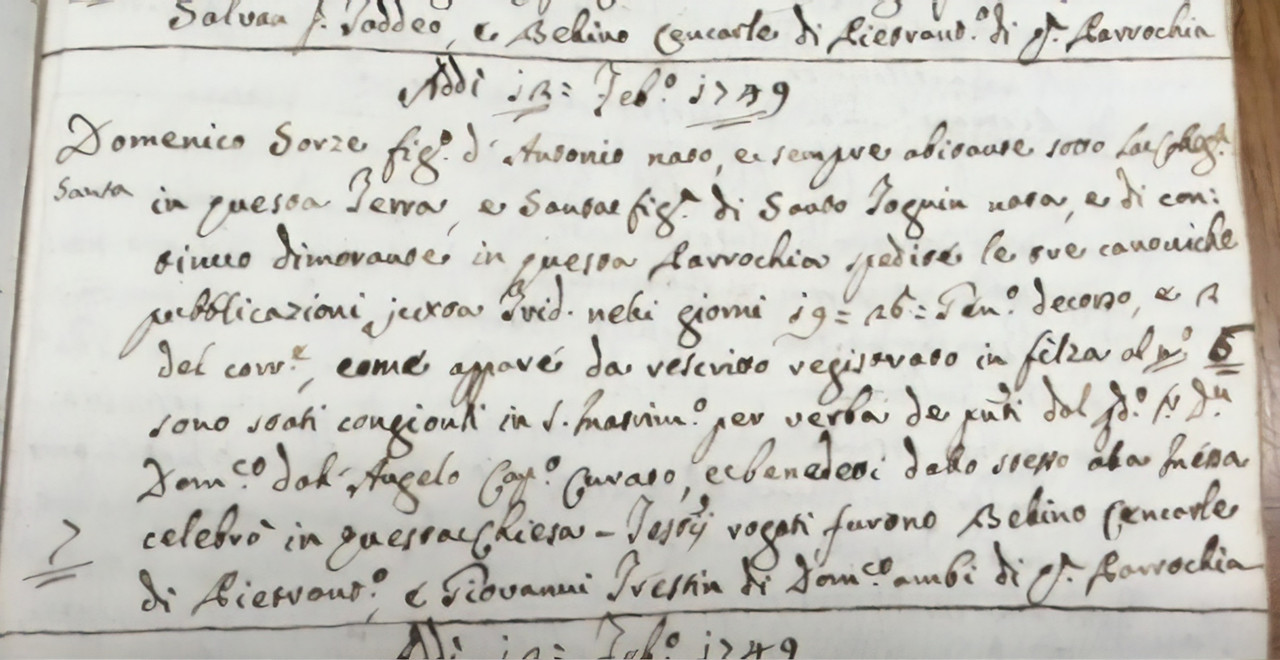 Salvan q. Taddeo, e Bellino Cencarle di Pietrant.º di q.ª Parrochia
Addi 12= Feb.º 1749
Domenico Sorze fig.º d'Antonio nato, e sempre abitante sotto
Santa in questa Terra, e Santa fig.ª di Santo Toguin nata, e di con:
tinuo dimorante in questa Parrochia spedite le tre canoniche
pubblicazioni juxta Trid. nelli giorni 19= 26= Gen.º decorso, e 2
del corr.e, come appare da rescritto registrato in filza al n.º 5
sono stati congionti in S. Matrim.º per verba de pnti dal sd.º S.r Dn
Dom.co dall'Angelo Cap.º Curato, e benedetti dallo stesso alla Messa
celebrò in questa Chiesa - Testij rogati furono Bellino Cencarle
7 di Pietrant.º, e Giovanni Trestin di Dom.co ambi di q.ª Parrochia
Addi 12= Feb.º 1749